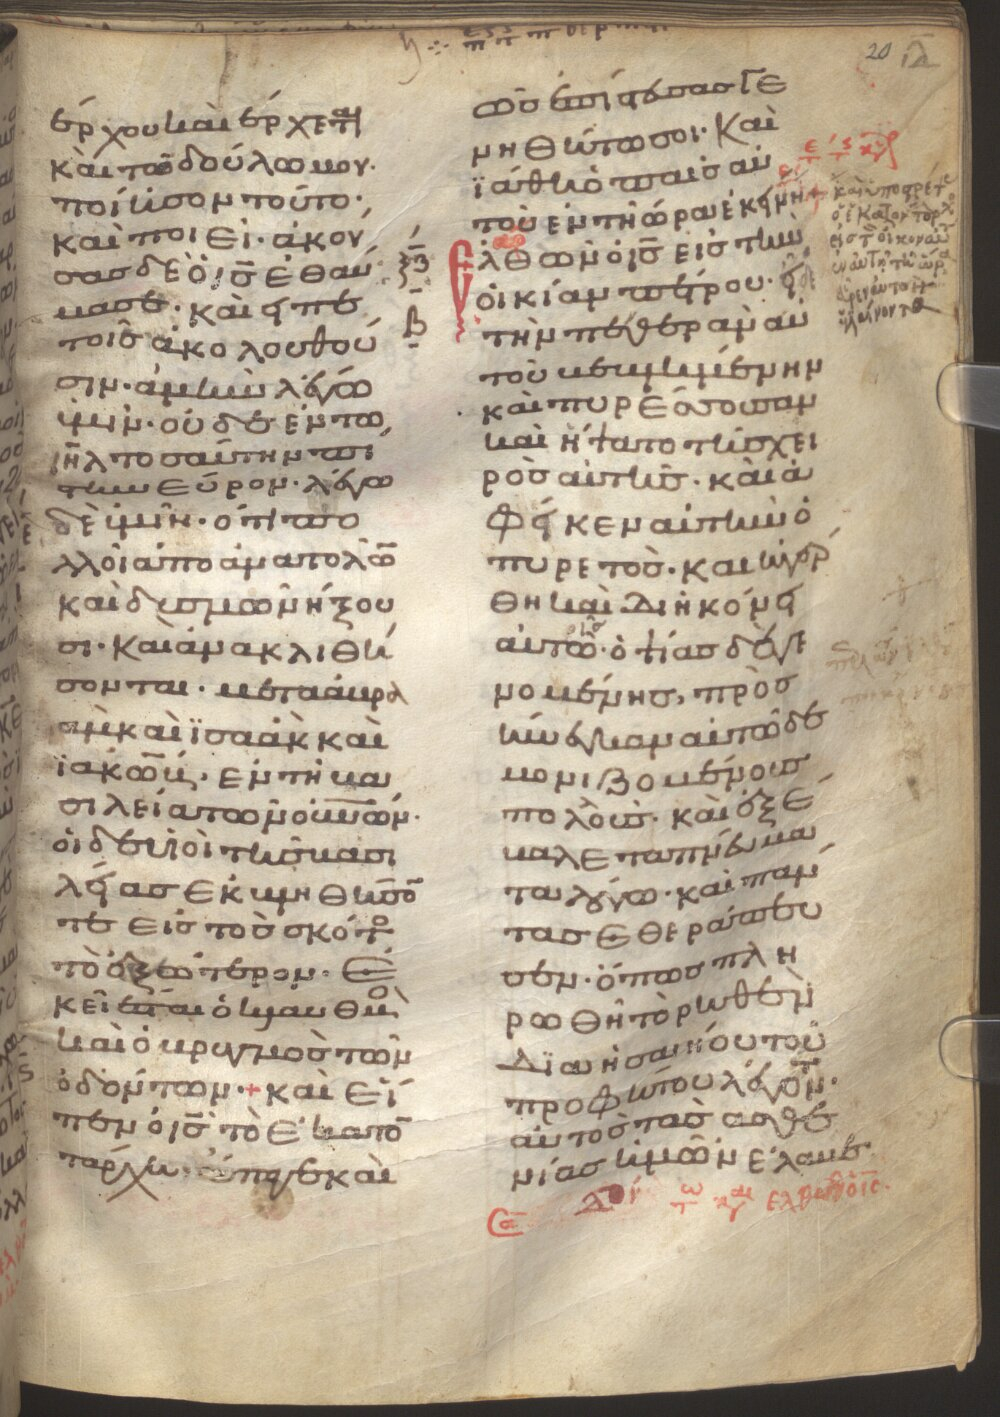 20
ἔρχου καὶ ἔρχεται
καὶ τῶ δούλω μου·
ποίησον τοῦτο·
καὶ ποιεῖ· ἀκού
σας δὲ ὁ ις ἐθαύ
μασε· καὶ εἶπε
τοῖς ἀκολουθοῦ
σιν· ἀμὴν λέγω
ὑμῖν· οὐδὲ ἐν τῶ
ιηλ τοσαύτην πί
στιν εὗρον· λέγω
δὲ ὑμῖν· ὅτι πο
λλοὶ ἀπὸ ἀνατολῶ
καὶ δυσμῶν ἥξου
σι· καὶ ἀνακλιθή
σονται· μετὰ ἁβρα
ὰμ καὶ ϊσαὰκ καὶ
ϊακώβ· ἐν τῆ βα
σιλεία τῶν οὐνῶν·
οἱ δὲ υἱοὶ τῆς βασι
λείας ἐκβληθήσο
ται εἰς τὸ σκότο
τὸ ἐξώτερον· ἐ
κεῖ ἔσται ὁ κλαυθμὸ
καὶ ὁ βρυγμὸς τῶν
ὀδόντων·+ καὶ εἶ
πεν ὁ ις τῶ ἑκατο
τάρχω· ὕπαγε καὶ
ὡς ἐπίστευσας γε
νηθήτω σοι· Καὶ
ϊάθη ὁ παῖς αὐ
τοῦ ἐν τῆ ὥρα ἐκείνη·
ξζ
β
Ἐλθὼν ὁ ις εἰς τὴν
οἰκίαν πέτρου· εἶδε
τὴν πενθερὰν αὐ
τοῦ βεβλημένην
καὶ πυρέσσουσαν
καὶ ἥψατο τῆς χει
ρὸς αὐτῆς· καὶ ἀ
φῆκεν αὐτὴν ὁ
πυρετὸς· καὶ ἠγέρ
θη καὶ διηκόνει
αὐτῶ· ὀψίας δὲ γε
νομένης, προσ
ήνεγκαν αὐτῶ δαι
μονιζομένους
πολλούς· καὶ ἐξέ
βαλε τὰ πνεύμα
τα λόγω· καὶ πάν
τας ἐθεράπευ
σεν· ὅπως πλη
ρωθῆ τὸ ρηθὲν
διὰ ἡσαϊου τοῦ
προφήτου λέγοντ·
αὐτὸς τὰς ἀσθε
νείας ἡμῶν ἔλαβε·
καὶ ὑποστρέψας
ὁ ἑκατόνταρχος
εἰς τὸν οἶκον αὐτοῦ
ἐν αὐτῆ τῆ ὥρα